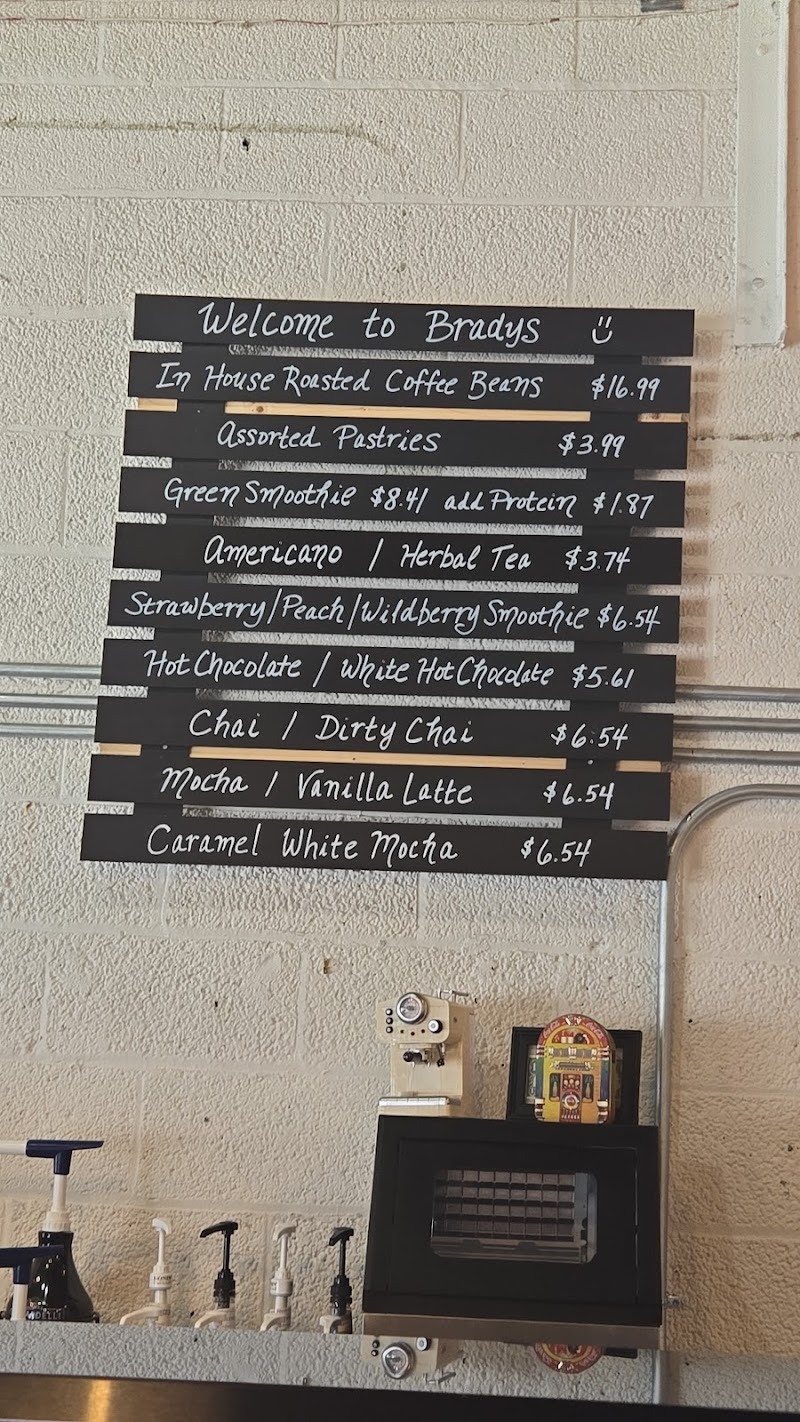 Welcome to Bradys
In House Roasted Coffee Beans $16.99
Assorted Pastries $3.99
Green Smoothie $8.41 add Protein $1.87
Americano / Herbal Tea $3.74
Strawberry/Peach/Wildberry Smoothie $6.54
Hot Chocolate / White Hot Chocolate $5.61
Chai / Dirty Chai $6.54
Mocha / Vanilla Latte $6.54
Caramel White Mocha $6.54